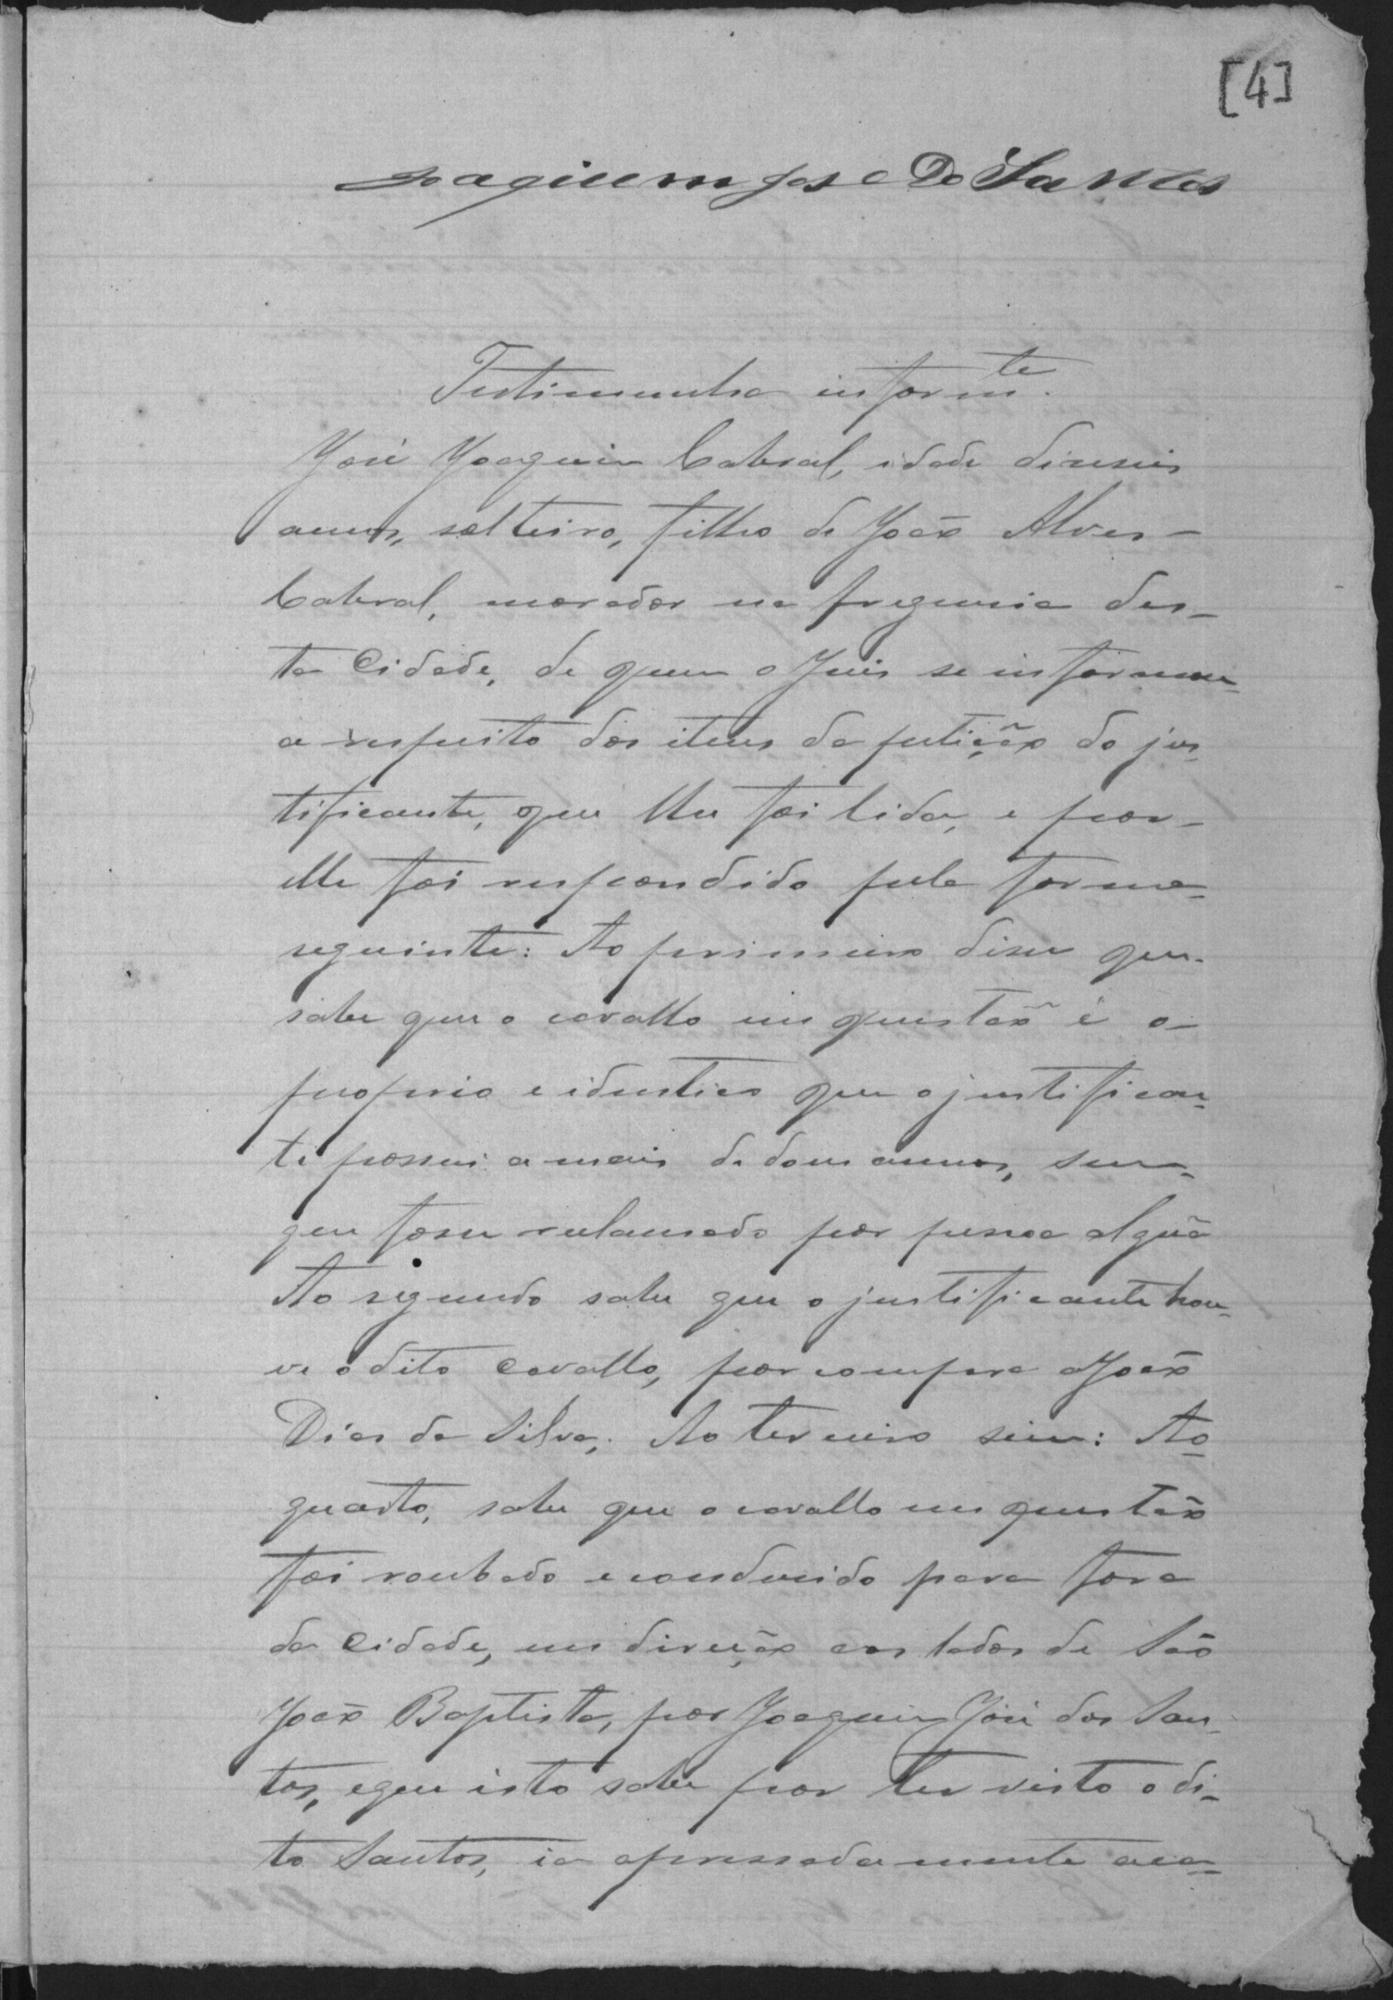 [4]
Joaquim Jose Do Santos
Testimunha inform.te
José Joaquim Cabral, idade diseseis
annos, solteiro, filho de João Alves
Cabral, morador na freguesia des-
ta Cidade, de quem o Juis se informou
a respeito dos itens da petição do jus-
tificante, que lhe foi lida, e por
elle foi respondido pela forma
seguinte: Ao primeiro disse que
sabe que o cavallo em questão é o
proprio e identico que o justifican-
te possui a mais de dous annos, sem
que fosse reclamado por pessoa algũa
Ao segundo sabe que o justificante hou-
ve o dito cavallo, por compra a João
Dias da Silva; Ao terceiro sim: Ao
quarto, sabe que o cavallo em questão
foi roubado e condusido para fora
da Cidade, em direção aos lados de São
João Baptista, por Joaquim José dos San-
tos, e que isto sabe por ter visto o di-
to Santos, ia apressadamente aca-